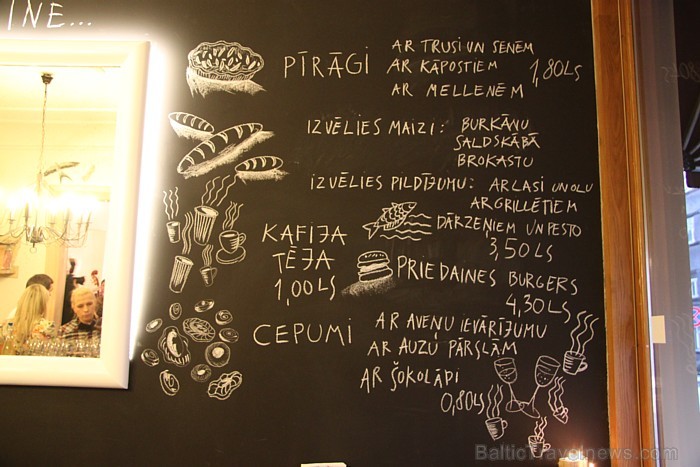 INE...
PĪRĀGI AR TRUSI UN SĒNĒM
AR KĀPOSTIEM 1,80LS
AR MELLENĒM
IZVĒLIES MAIZI: BURKĀNU
SALDSKĀBĀ
BROKASTU
IZVĒLIES PILDĪJUMU: AR LASI UN OLU
AR GRILLĒTIEM
DĀRZEŅIEM UN PESTO
3,50LS
KAFIJA
TĒJA
1,00LS
PRIEDAINES BURGERS
4,30LS
CEPUMI AR AVEŅU IEVĀRĪJUMU
AR AUZU PĀRSLĀM
AR ŠOKOLĀPI
0,80LS
BalticTravelnews.com